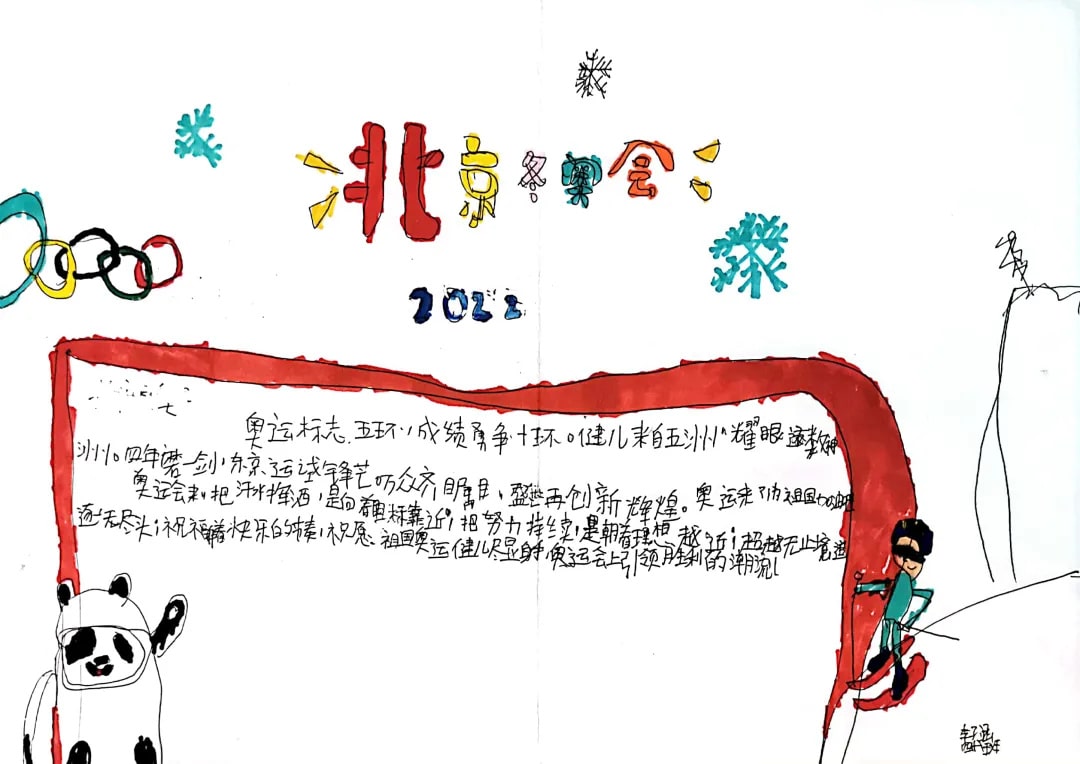 北京冬奥会
2022
奥运标志、五环，成绩勇争十环。健儿来自五洲，耀眼
洲。四年磨一剑，东京运试锋芒，万众齐瞩目，盛世再创新辉煌。奥运来了，为祖国加油
奥运会来，把汗水挥洒，是向着目标靠近；把努力持续，是朝着理想越近；超越无止境，追
逐无尽头；祝福着快乐的
祝愿祖国奥运健儿尽显身手，奥运会上引领胜利的潮流！